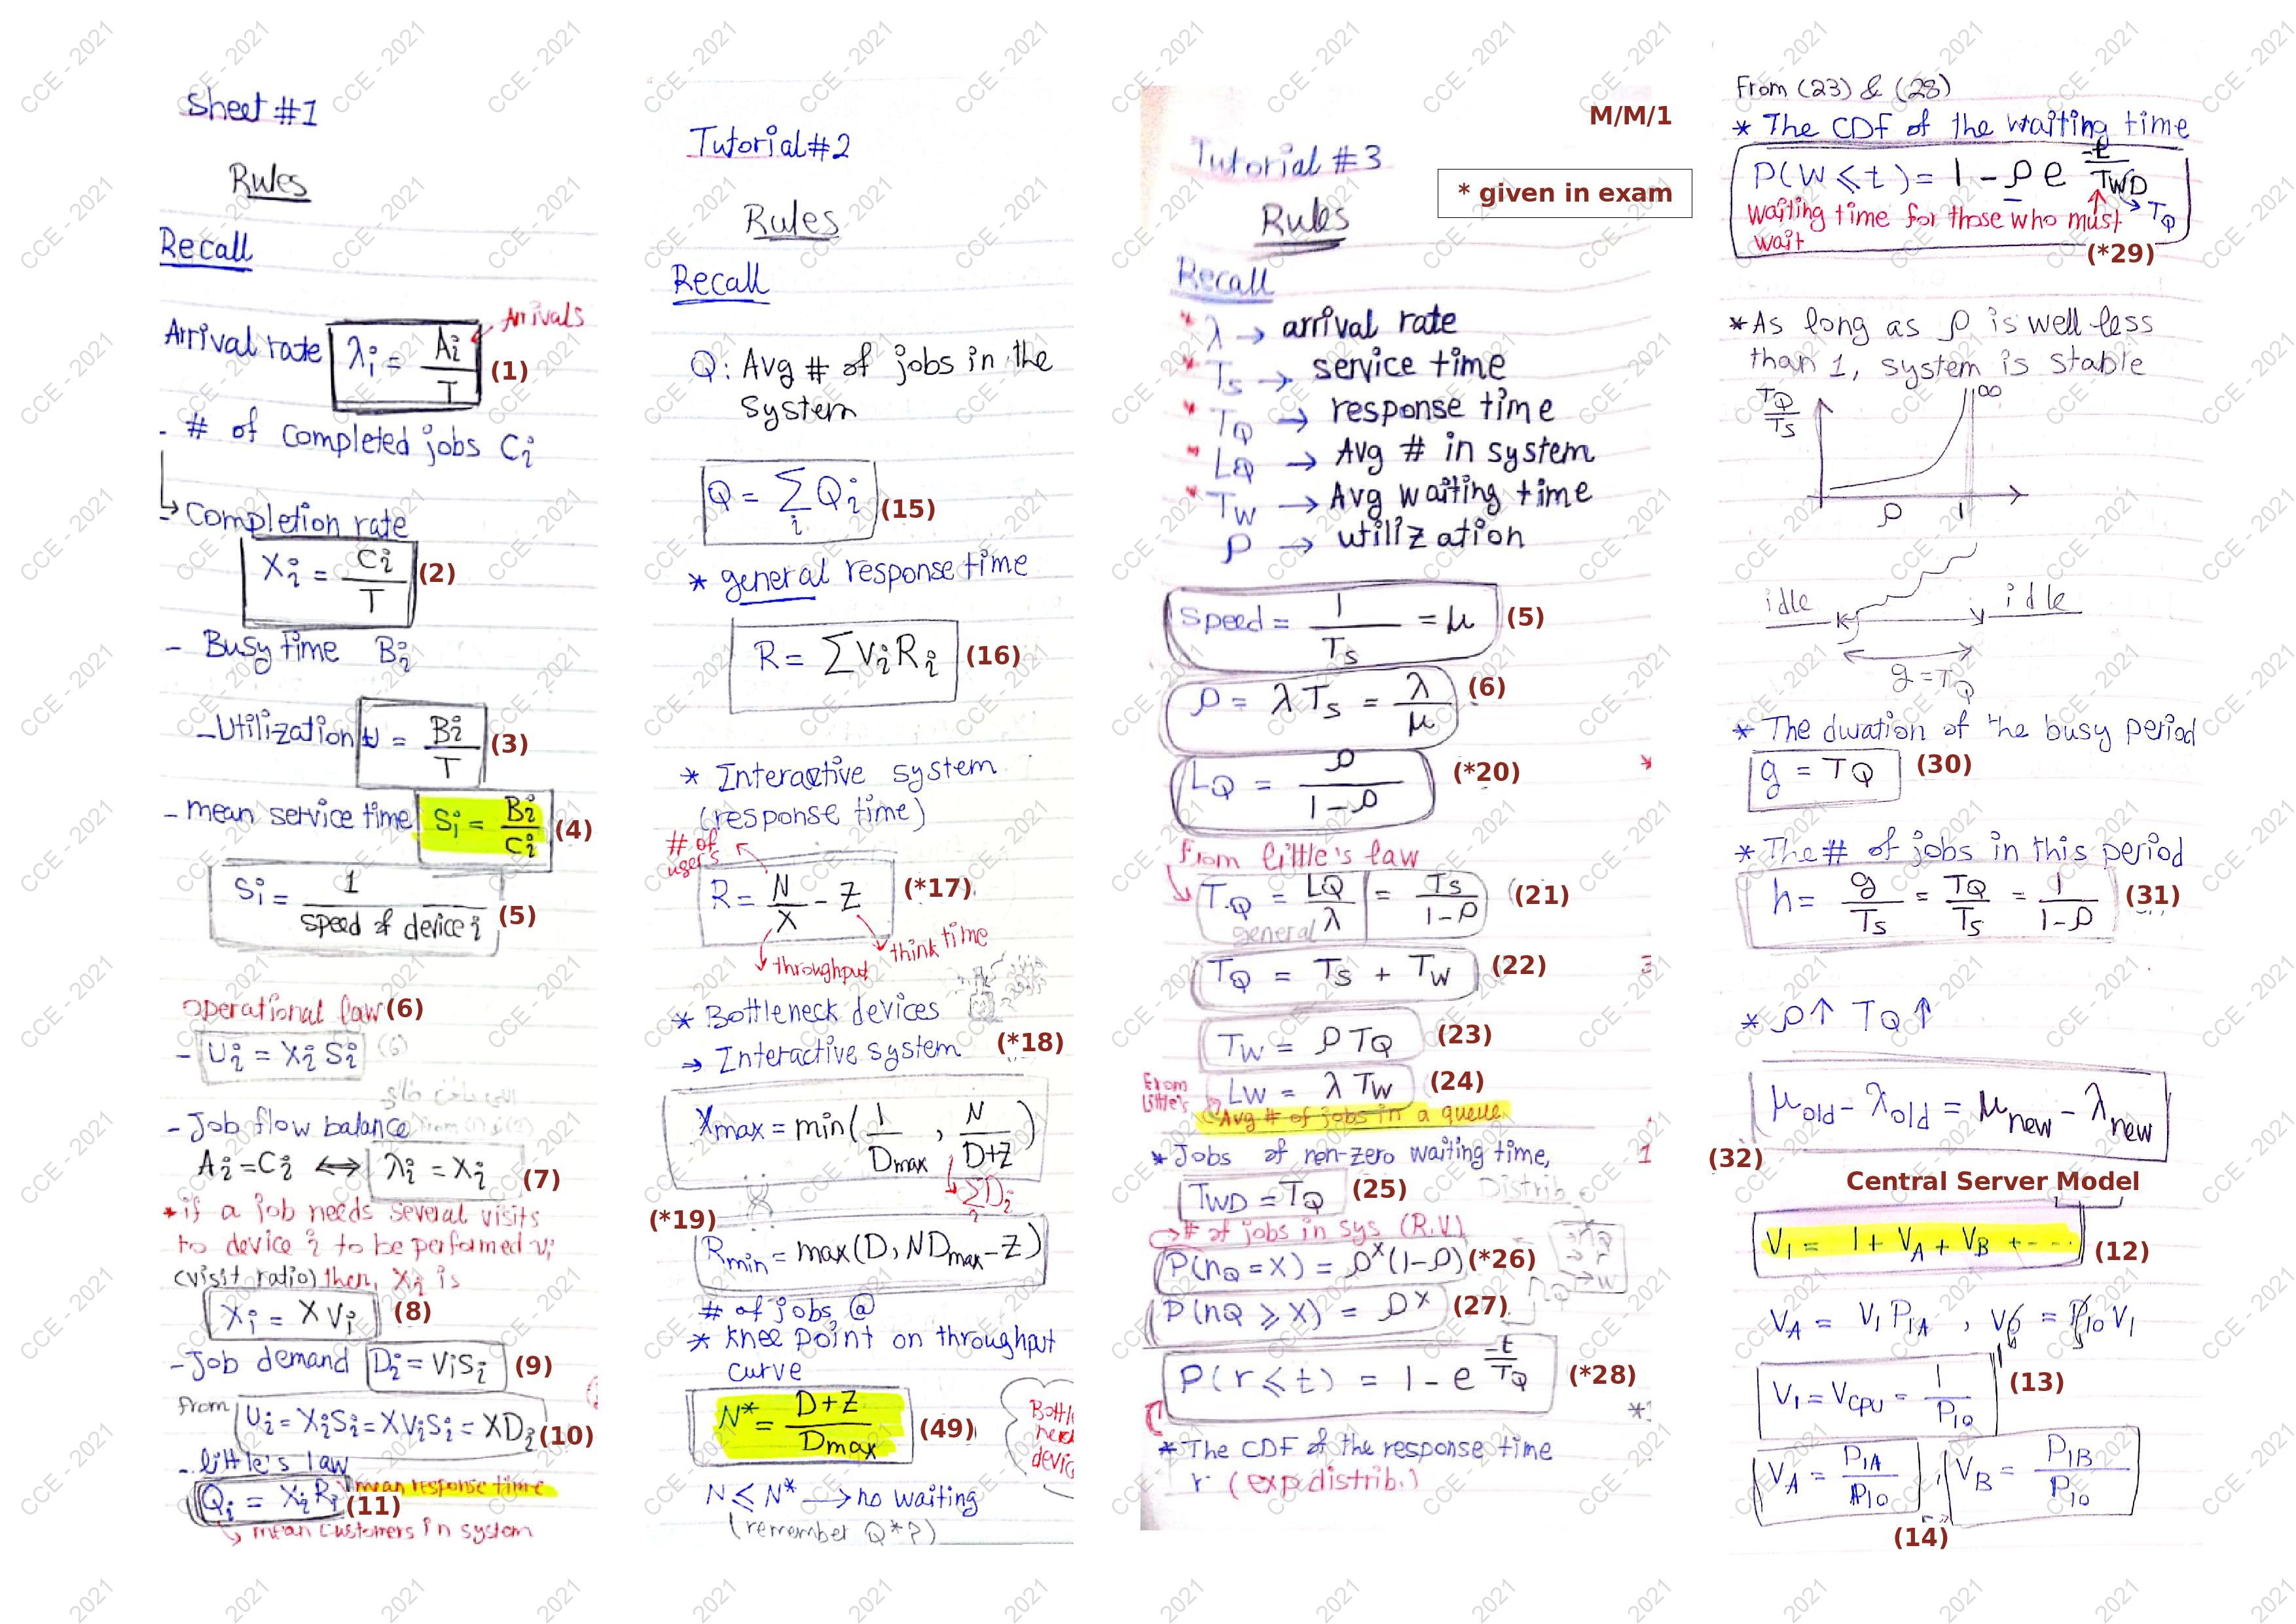 Sheet #1
Rules
Recall
Arrival rate λi = Ai / T (1)
Arrivals
- # of completed jobs Ci
↳ Completion rate
Xi = Ci / T (2)
- Busy time Bi
- Utilization U = Bi / T (3)
- mean service time Si = Bi / Ci (4)
Si = 1 / speed of device i (5)
operational law (6)
- Ui = Xi Si (6)
- Job flow balance
Ai = Ci ⟺ λi = Xi (7)
* if a job needs several visits
to device i to be performed Vi
(visit ratio) then, Xi is
Xi = X Vi (8)
- Job demand Di = Vi Si (9)
from Ui = Xi Si = X Vi Si = X Di (10)
- little's law
Qi = Xi Ri (11)
mean response time
↳ mean customers in system
Tutorial #2
Rules
Recall
Q: Avg # of jobs in the
System
Q = Σi Qi (15)
* general response time
R = Σ Vi Ri (16)
* Interactive system
(response time)
# of
users
R = N / X - Z (*17)
throughput
think time
* Bottleneck devices
→ Interactive system (*18)
Xmax = min( 1 / Dmax , N / D+Z )
ΣDi
(*19)
Rmin = max(D, N Dmax - Z)
# of jobs @
* knee point on throughput
curve
N* = D+Z / Dmax (49)
N ≤ N* → no waiting
(remember Q*?)
M/M/1
Tutorial #3
* given in exam
Rules
Recall
* λ → arrival rate
* Ts → service time
* TQ → response time
* LQ → Avg # in system
* Tw → Avg waiting time
ρ → utilization
Speed = 1 / Ts = μ (5)
ρ = λ Ts = λ / μ (6)
LQ = ρ / 1-ρ (*20)
from little's law
TQ = LQ / λ = Ts / 1-ρ (21)
general
TQ = Ts + Tw (22)
Tw = ρ TQ (23)
From
little's
Lw = λ Tw (24)
Avg # of jobs in a queue
* Jobs of non-zero waiting time,
TWD = TQ (25)
Distrib
# of jobs in sys (R.V)
P(nQ = x) = ρ^x (1-ρ) (*26)
P(nQ ≥ x) = ρ^x (27)
P(r ≤ t) = 1 - e^(-t/TQ) (*28)
* The CDF of the response time
r (exp. distrib.)
From (23) & (28)
* The CDF of the waiting time
P(W ≤ t) = 1 - ρ e^(-t/TWD)
→ TQ
waiting time for those who must
wait
(*29)
* As long as ρ is well less
than 1, system is stable
TQ / Ts
∞
ρ 1
idle idle
g = TQ
* The duration of the busy period
g = TQ (30)
* The # of jobs in this period
h = g / Ts = TQ / Ts = 1 / 1-ρ (31)
* ρ↑ TQ↑
μold - λold = μnew - λnew
(32)
Central Server Model
V1 = 1 + VA + VB + ---- (12)
VA = V1 P1A , V0 = P10 V1
V1 = VCPU = 1 / P10 (13)
VA = P1A / P10 , VB = P1B / P10
(14)
CCE - 2021